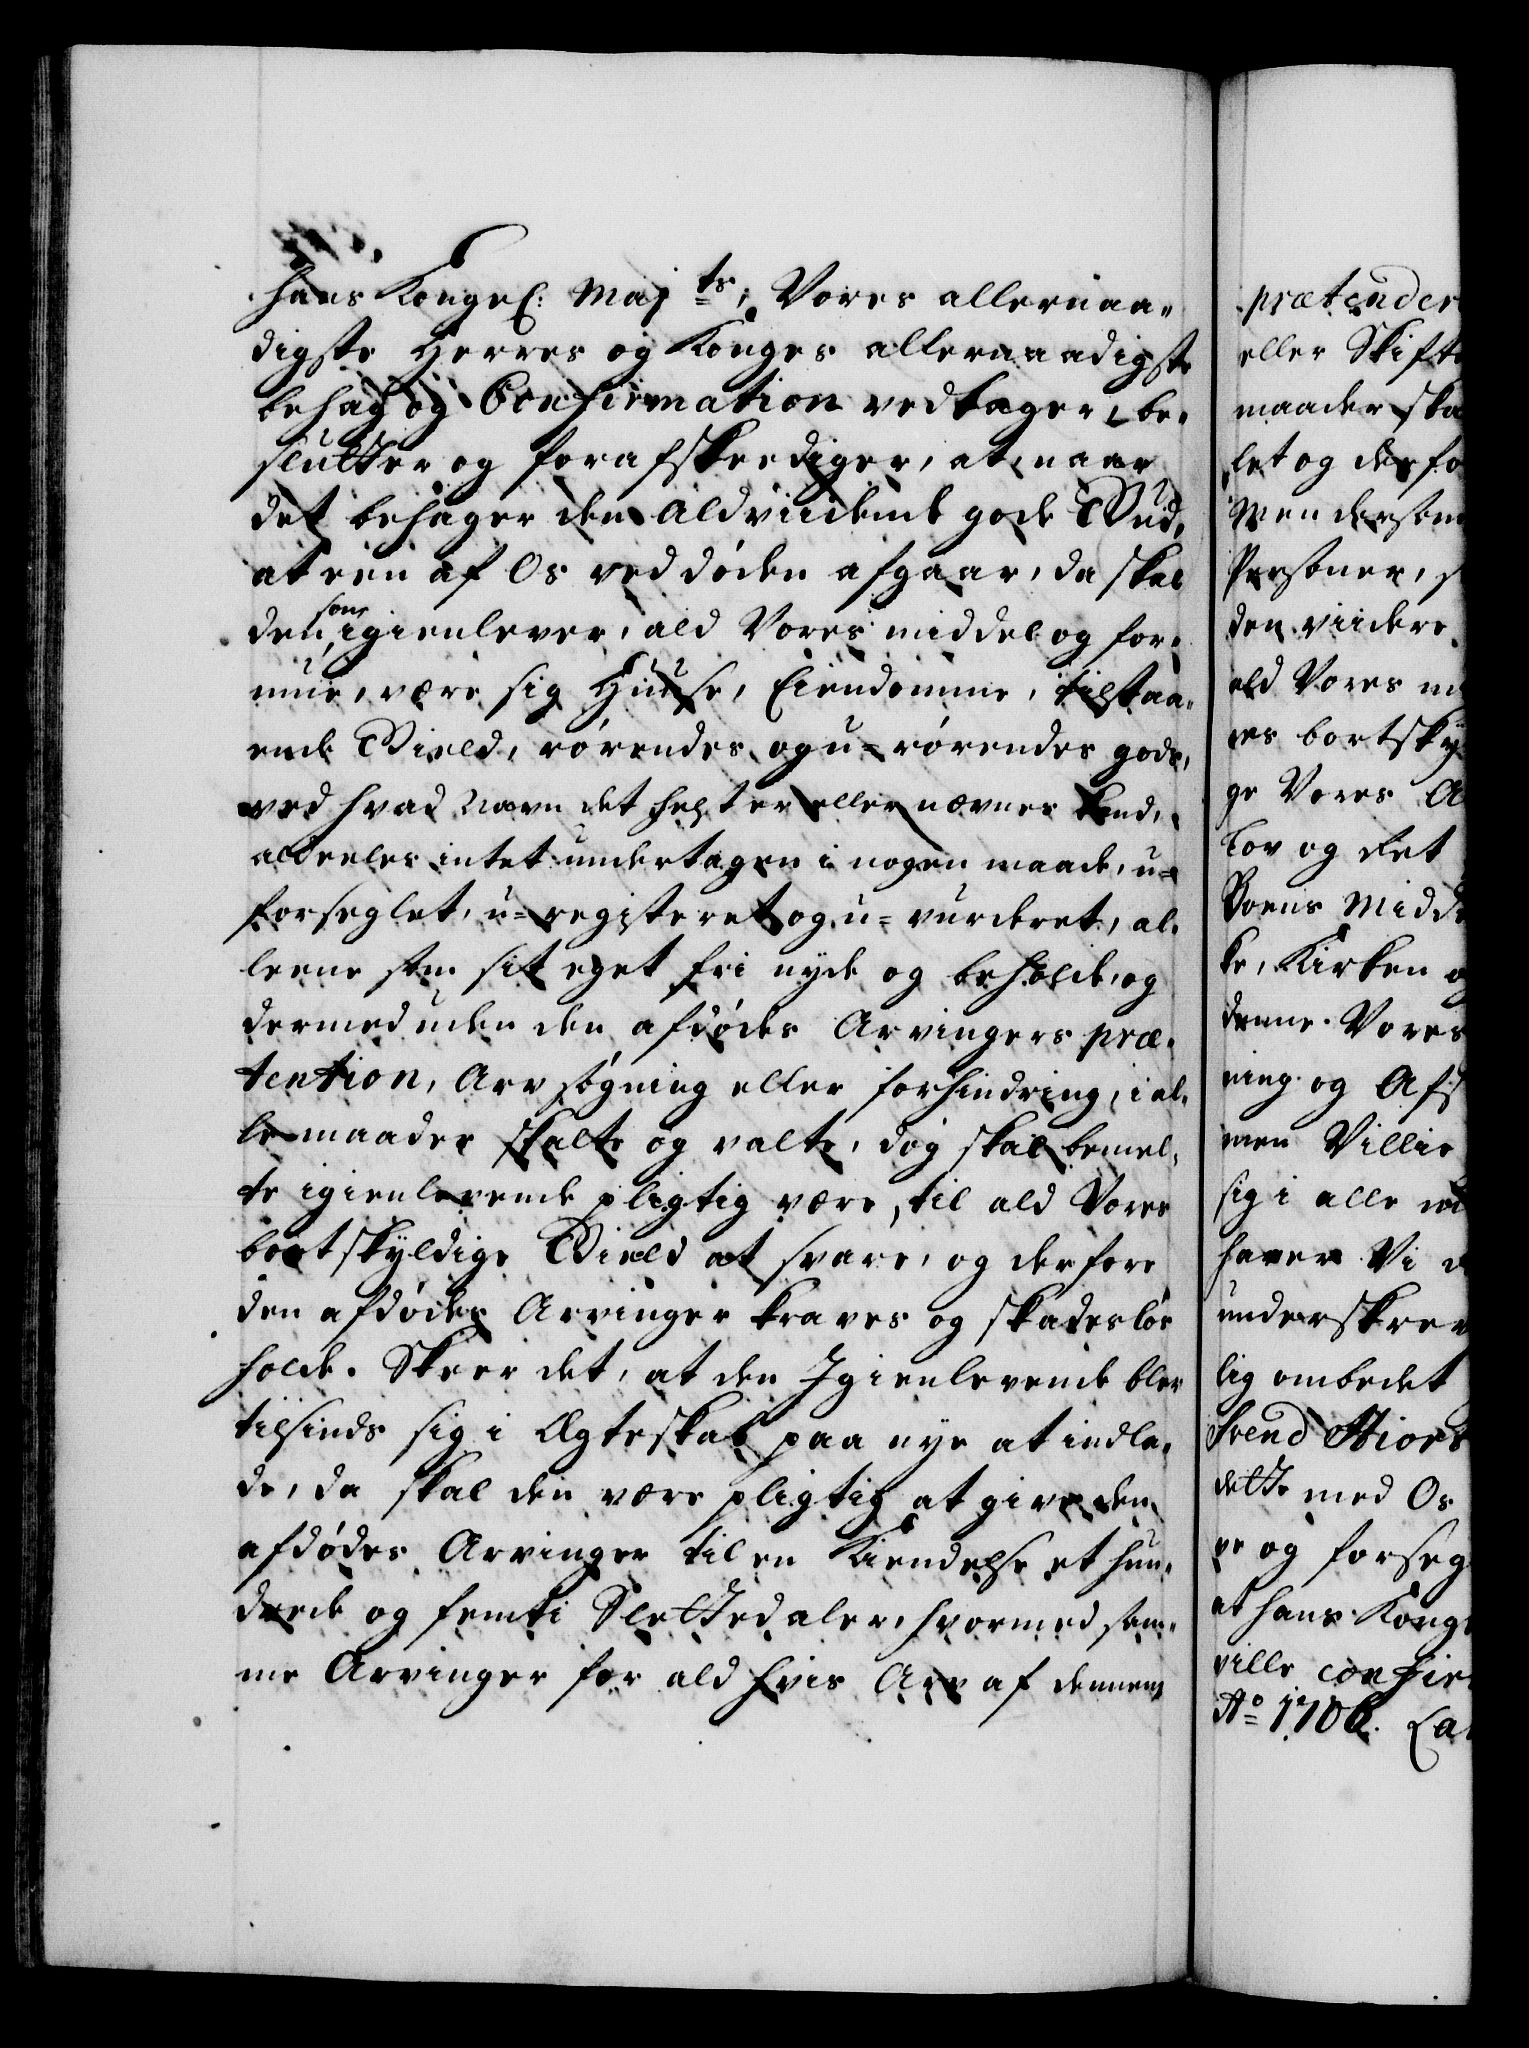 hans Kongel: Maj ts; Vores allernaa-
digste Herres og Konges allernaadigste
behag og Confirmation vedtager, be-
slutter og forafskeediger, at naar
det behager den Aldviidende gode Gud,
at een af Os ved døden afgaar, da skal
den som igienlever, ald Vores middel og for-
mue, være sig Huuse, Eiendomme, tilstaa-
ende Gield, rørendes og u-rørendes gods,
ved hvad Navn det helst er eller nævnes kand,
aldeeles intet undertagen i nogen maade, u-
forseglet, u-registeret og u-vurderet, al-
leene som sit eget fri nyde og beholde, og
dermed uden den afdødes Arvingers præ-
tention, Arv søgning eller forhindring, i al-
le maader skalte og valte, dog skal bemel-
te igienlevende pligtig være, til ald Vores
bortskyldige Gield at svare, og derfore
den afdødes Arvinger kraves og skadesløs
holde. Skeer det, at den Igienlevende blev
tilsinds sig i Ægteskab paa nye at indla-
de, da skal den være pligtig at give den
afdødes Arvinger til en Kiendelse et hun-
drede og femti Slettedaler, hvormed sam-
me Arvinger for ald hvis Arv af dennem
prætender
eller Skifte
maader ska
let og derfo
Men dersom
Personer, s
den viidere
ald Vores m
res bortsky
ge Vores A
Lov og det
Boens Midde
ke, Kirken o
denne Vores
ning og Afs
men Villie
sig i alle m
haver Vi d
underskrev
lig ombedet
Svend Hiort
dette med Os
ve og forseg
at hans Kong
ville confir
Ao 1706. La